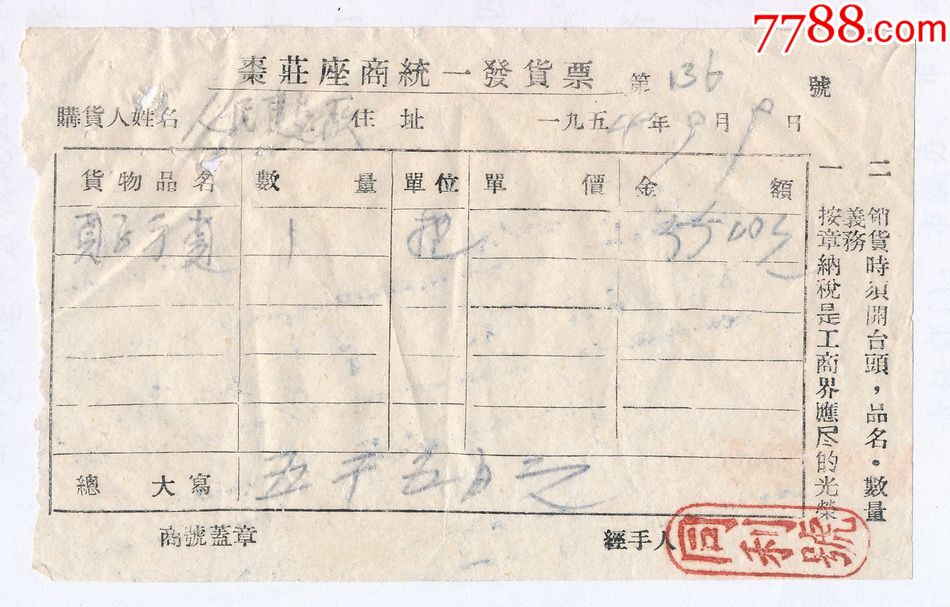 7788.com
棗莊座商統一發貨票 第 136 號
購貨人姓名 住址 一九五4年9月9日
貨物品名 數量 單位 單價 金額
1 把 5500元
總 大寫 五千五百元
商號蓋章 經手人
同利號
一 按章納稅是工商界應尽的光榮
義務
二 銷貨時須開台頭，品名。數量